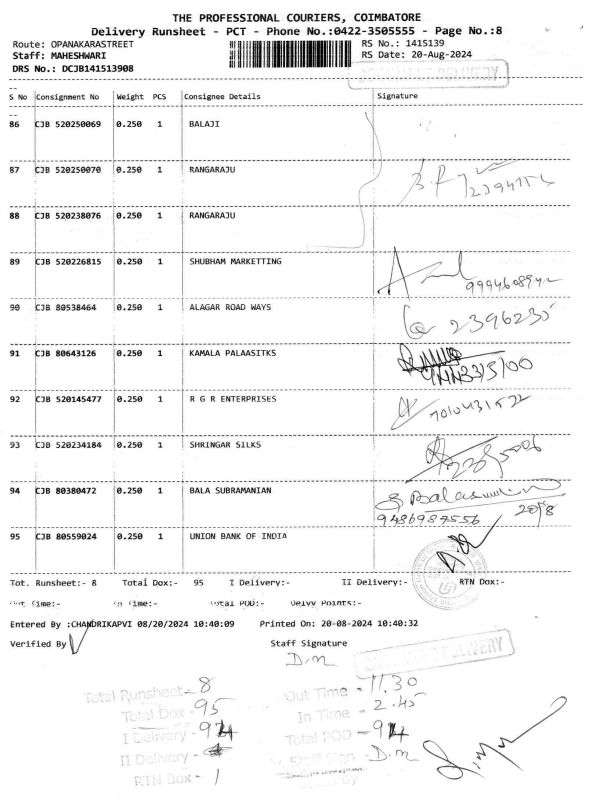 THE PROFESSIONAL COURIERS, COIMBATORE
Delivery Runsheet - PCT - Phone No.:0422-3505555 - Page No.:8
Route: OPANAKARASTREET RS No.: 1415139
Staff: MAHESHWARI RS Date: 20-Aug-2024
DRS No.: DCJB141513908 DELIVERY
S No Consignment No Weight PCS Consignee Details Signature
86 CJB 520250069 0.250 1 BALAJI
87 CJB 520250070 0.250 1 RANGARAJU
88 CJB 520238076 0.250 1 RANGARAJU
89 CJB 520226815 0.250 1 SHUBHAM MARKETTING
90 CJB 80538464 0.250 1 ALAGAR ROAD WAYS 2396235
91 CJB 80643126 0.250 1 KAMALA PALAASITKS
92 CJB 520145477 0.250 1 R G R ENTERPRISES
93 CJB 520234184 0.250 1 SHRINGAR SILKS
94 CJB 80380472 0.250 1 BALA SUBRAMANIAN
95 CJB 80559024 0.250 1 UNION BANK OF INDIA
Tot. Runsheet:- 8 Total Dox:- 95 I Delivery:- II Delivery:- RTN Dox:-
Out Time:- In Time:- Total POD:- Delvy Points:-
Entered By :CHANDRIKAPVI 08/20/2024 10:40:09 Printed On: 20-08-2024 10:40:32
Verified By Staff Signature
D.M
DELIVERY
Total Runsheet - 8 Out Time - 11.30
Total Dox - 95 In Time - 2.45
I Delivery - 94 Total POD - 94
II Delivery - Staff Sign - D.M
RTN Dox - 1